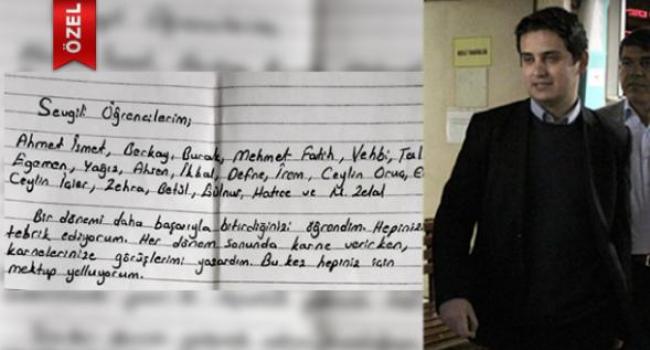 ÖZEL
Sevgili Öğrencilerim;
Ahmet İsmet, Berkay, Burak, Mehmet Fatih, Vehbi,
Egemen, Yağız, Ahsen, İkbal, Defne, İrem, Ceylin Oruç,
Ceylin İçler, Zehra, Betül, Gülnur, Hatice ve M. Zelal
Bir dönemi daha başarıyla bitirdiğinizi öğrendim. Hepinizi
tebrik ediyorum. Her dönem sonunda karne verirken,
karnelerinize görüşlerimi yazardım. Bu kez hepiniz için
mektup yolluyorum.